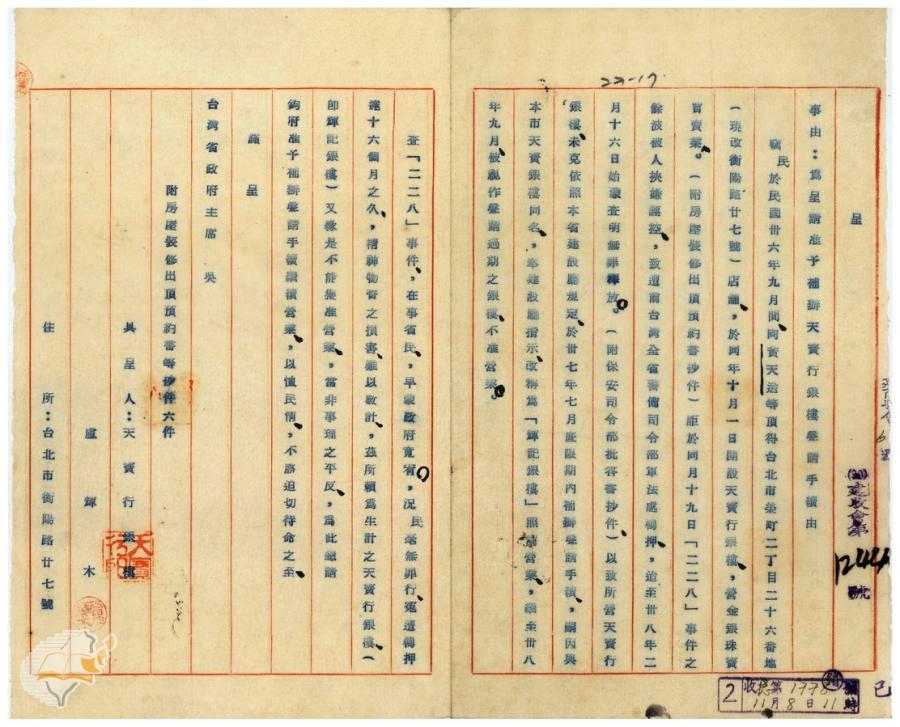 呈
事由：為呈請准予補辦天寶行銀樓聲請手續由
竊民於民國卅六年九月間向黃天送等頂得台北市榮町二丁目二十六番地
（現改衡陽路廿七號）店舖，於同年十月一日開設天寶行銀樓，營金銀珠寶
買賣業。（附房屋裝修出頂預約書抄件）詎於同月十九日「二二八」事件之
餘波被人挾嫌誣控，致遭前台灣全省警備司令部軍法處覊押，迨至卅八年二
月十六日始蒙查明無罪釋放。（附保安司令部批答書抄件）以致所營天寶行
銀樓，未克依照本省建設廳規定，於卅七年七月底限期內補辦聲請手續，嗣因與
本市天寶銀樓同名，奉建設廳指示，改稱為「輝記銀樓」照常營業，繼至卅八
年九月，被視作聲請過期之銀樓不准營業。
查「二二八」事件，在事省民，早蒙政府寬宥，況民毫無罪行，冤遭覊押
達十六個月之久，精神物質之損害，難以數計，茲所賴為生計之天寶行銀樓，（
即輝記銀樓）又緣是不能獲准營業，當非事理之平反，為此懇請
鈞府准予補辦聲請手續繼續營業，以恤民情，不勝迫切待命之至
謹呈
台灣省政府主席　吳
附房屋裝修出頂預約書等抄件六件
具呈人：天寶行銀樓
盧輝木
住所：台北市衡陽路廿七號
22-17
號
2
收 第1778
11月8日11時